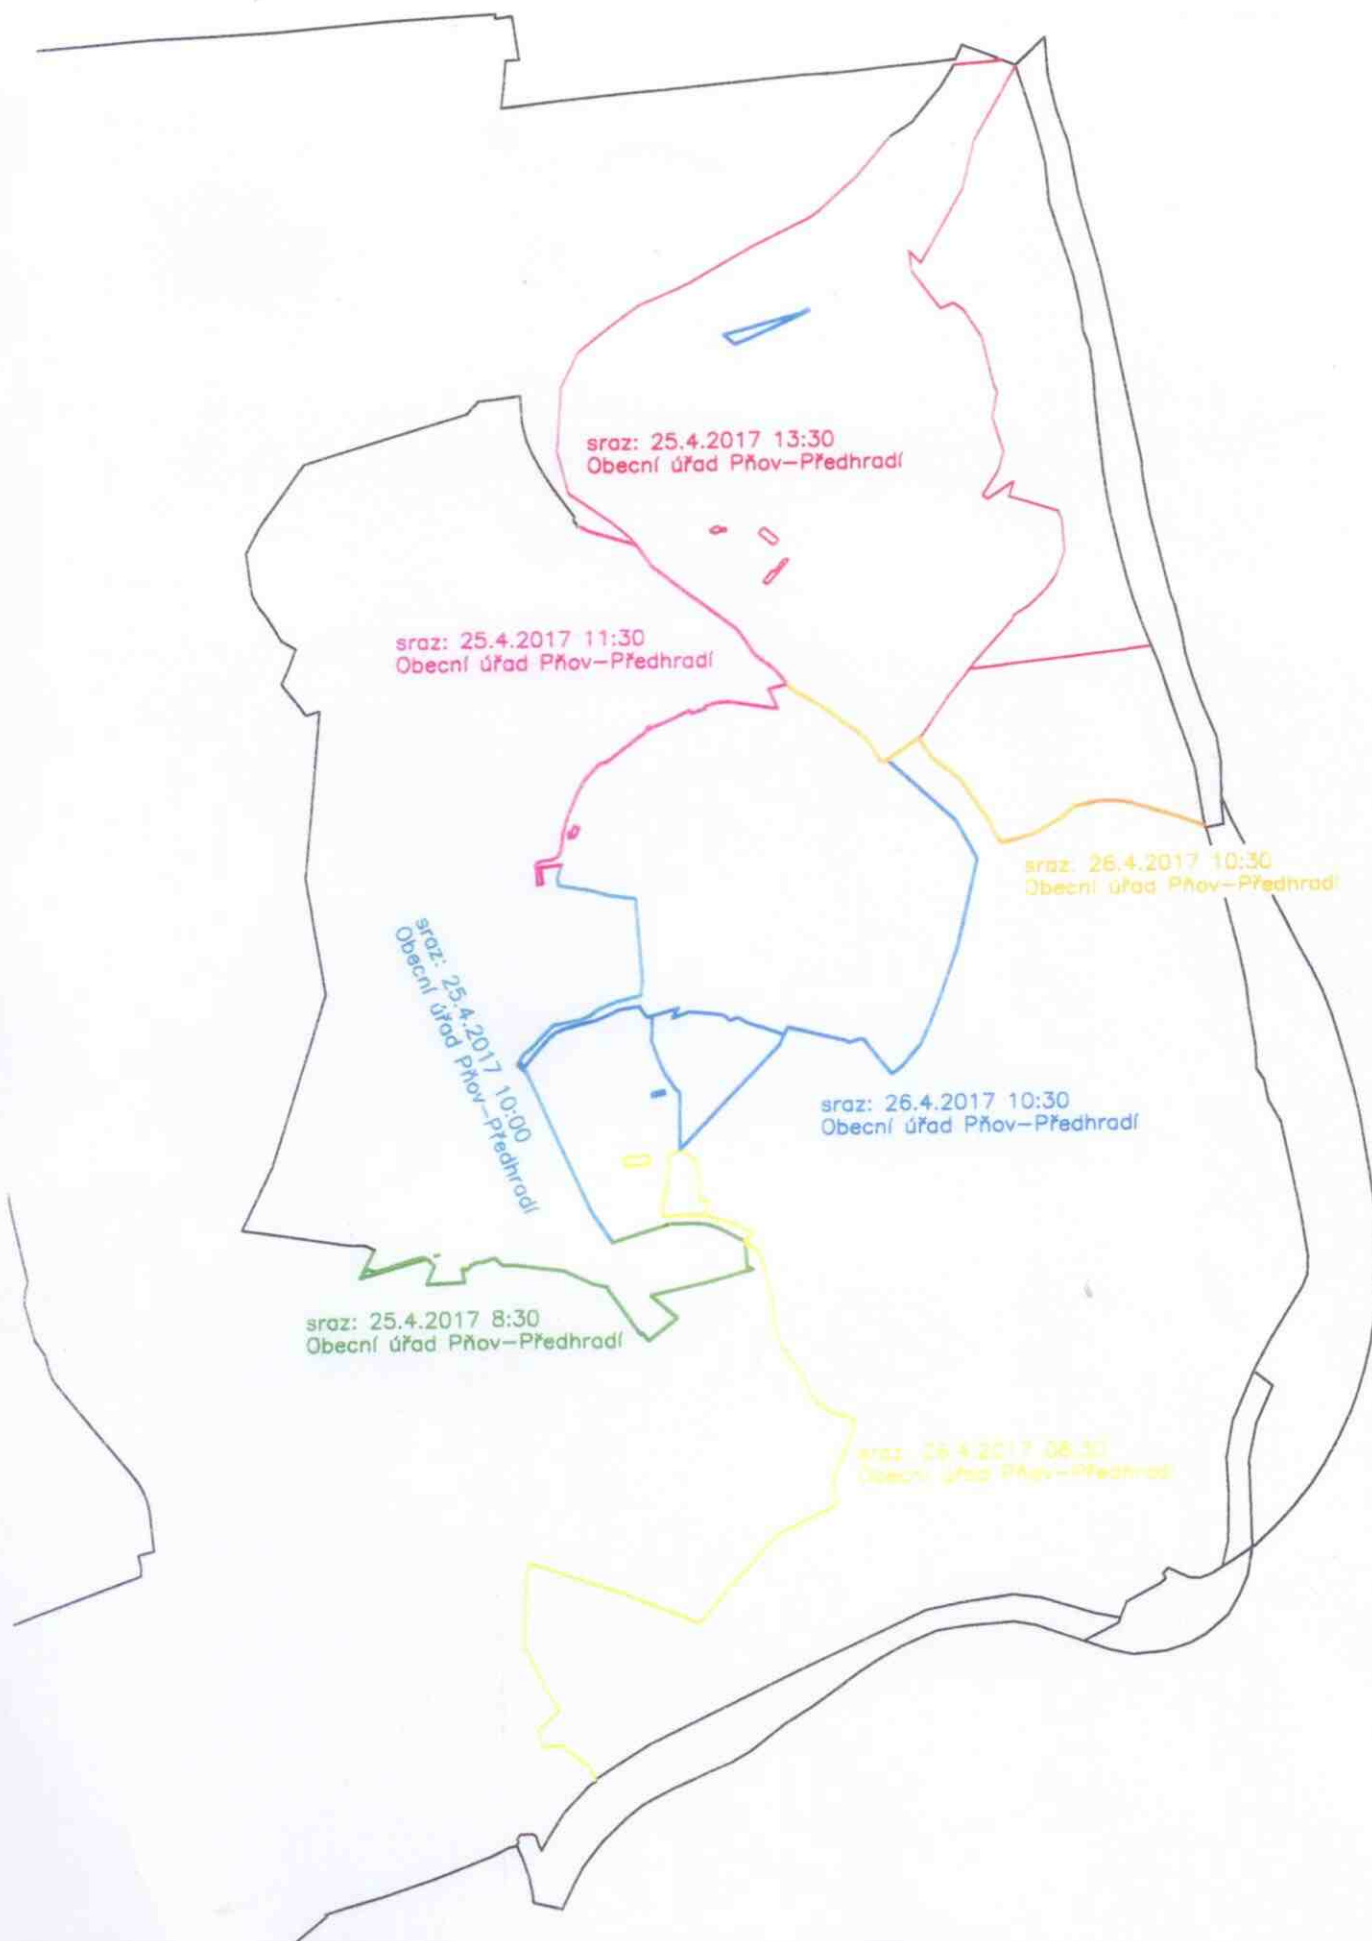 sraz: 25.4.2017 13:30
Obecní úřad Pňov–Předhradí
sraz: 25.4.2017 11:30
Obecní úřad Pňov–Předhradí
sraz: 26.4.2017 10:30
Obecní úřad Pňov–Předhradí
sraz: 25.4.2017 10:00
Obecní úřad Pňov–Předhradí
sraz: 26.4.2017 10:30
Obecní úřad Pňov–Předhradí
sraz: 25.4.2017 8:30
Obecní úřad Pňov–Předhradí
sraz: 26.4.2017 08:30
Obecní úřad Pňov–Předhradí